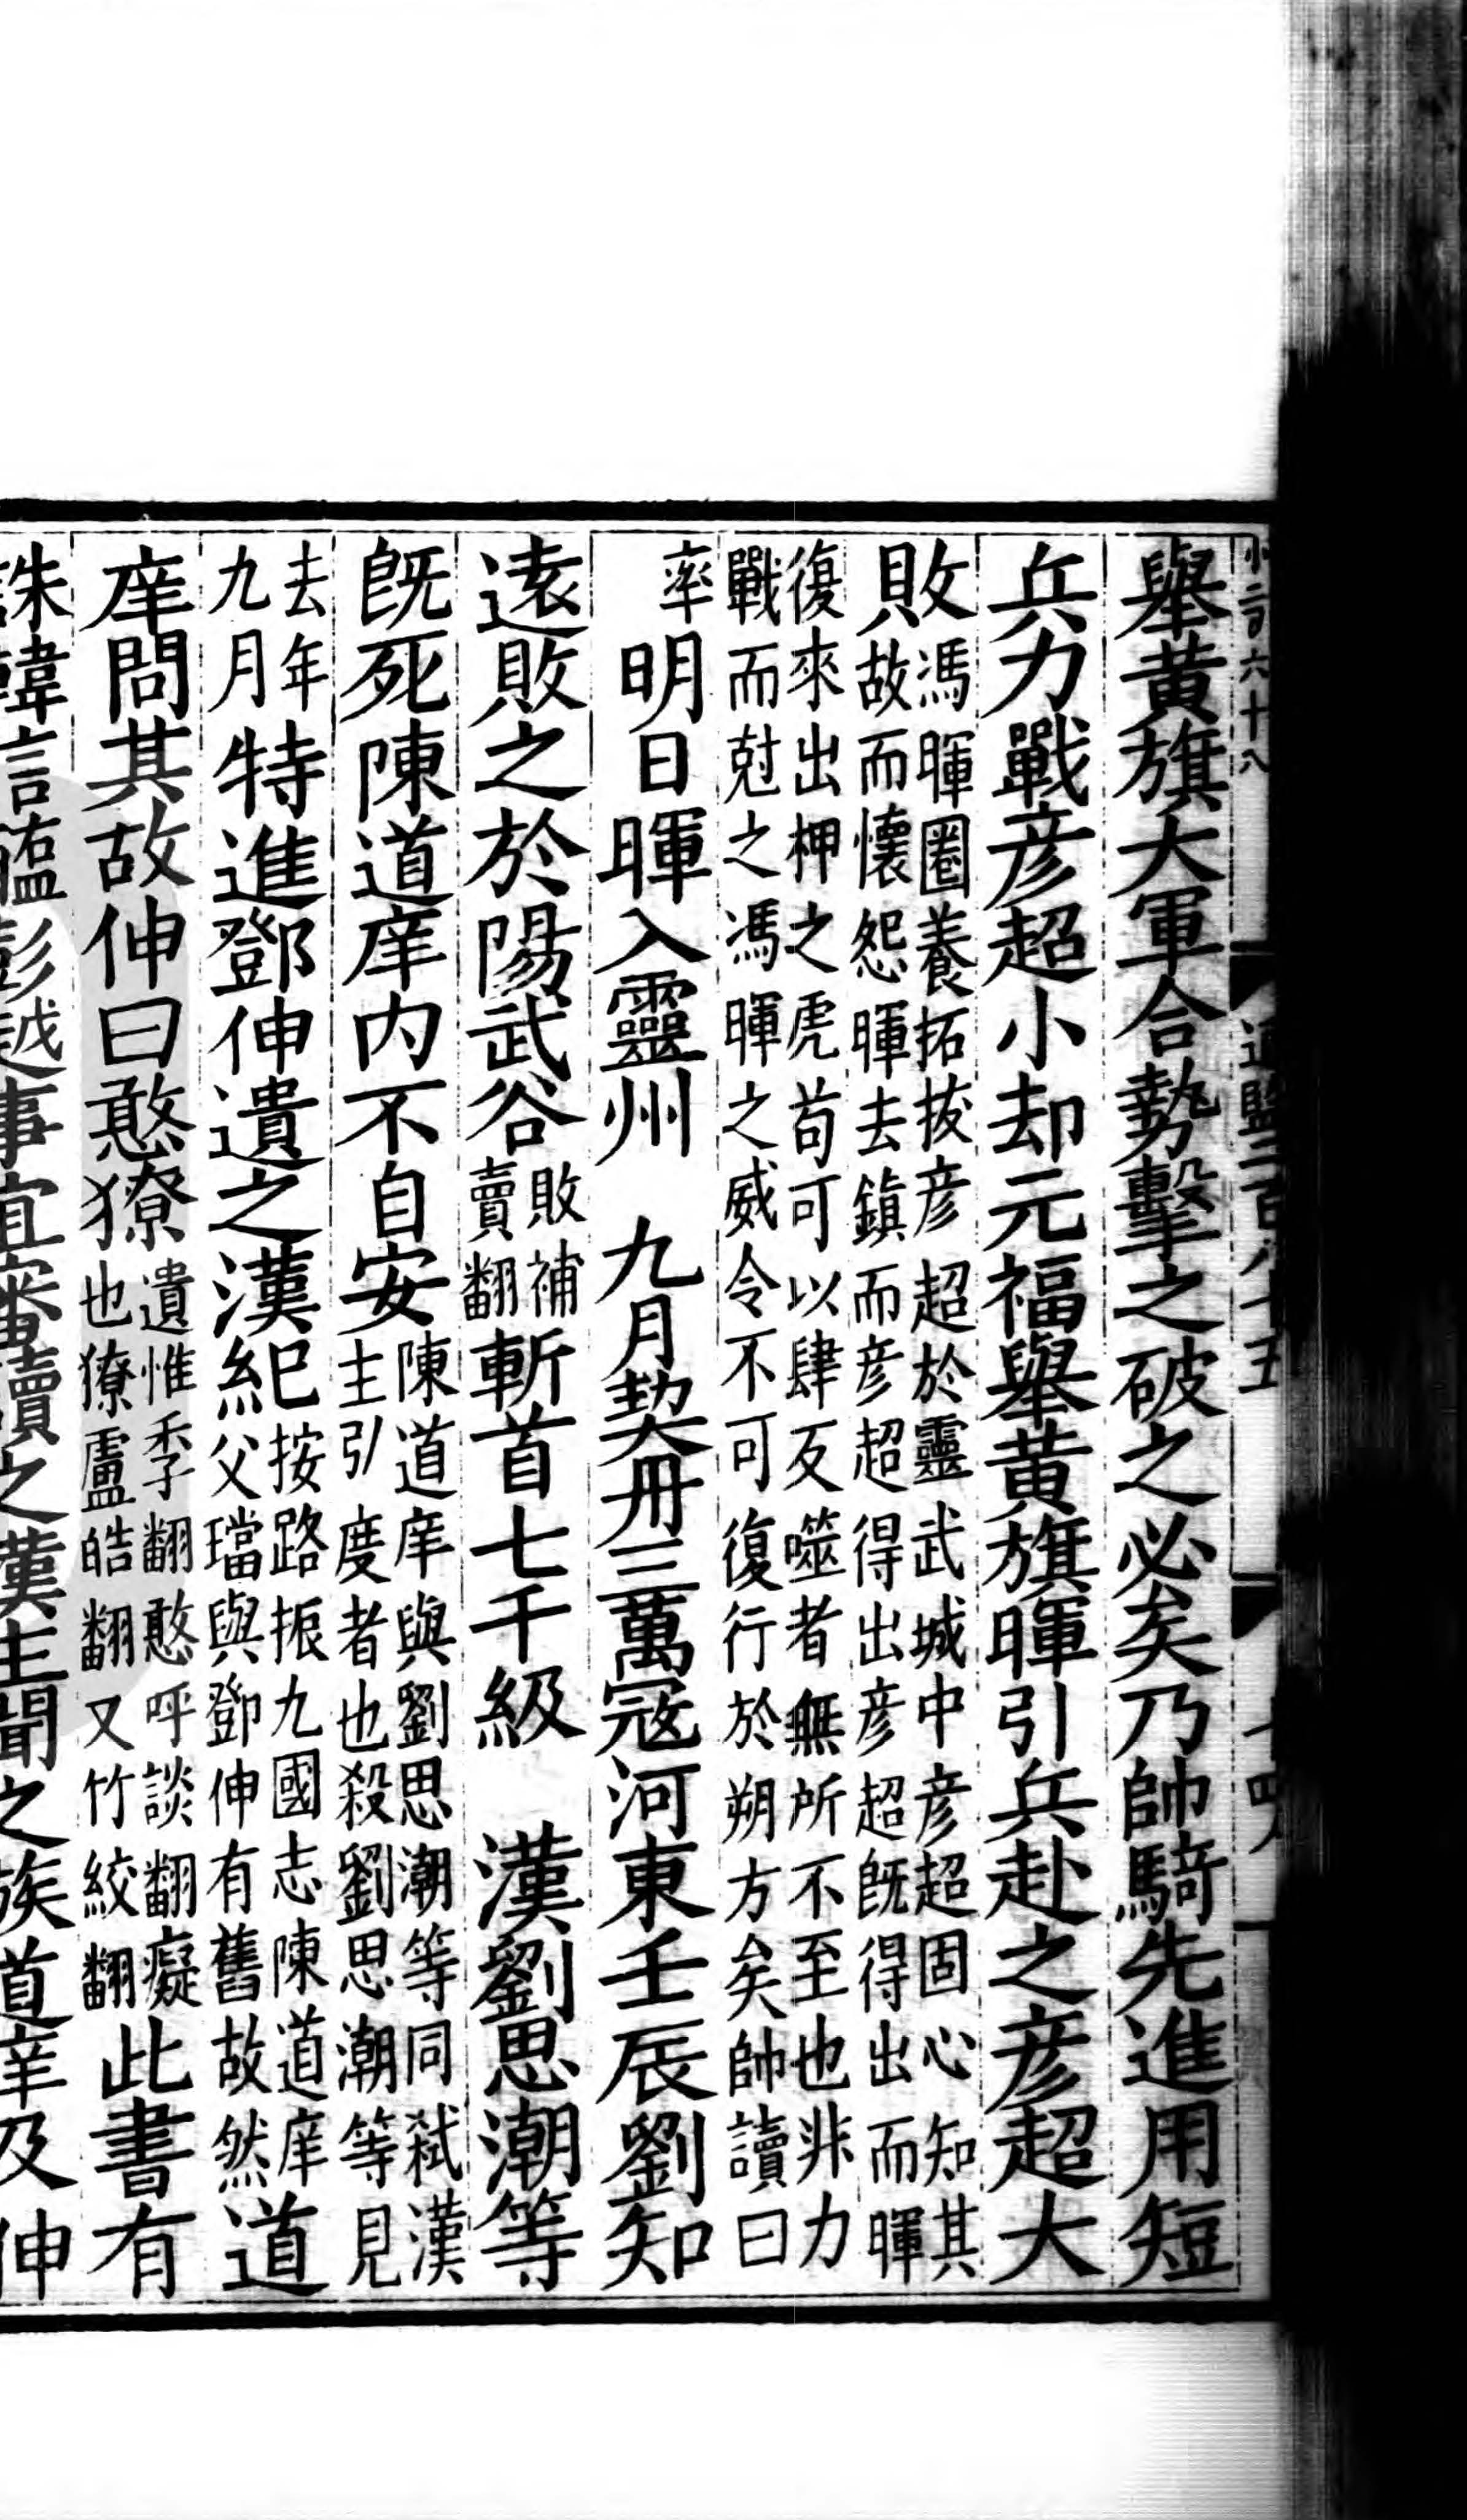 舉黃旗大軍合勢擊之破之必矣乃帥騎先進用短
兵力戰彥超小却元福舉黃旗暉引兵赴之彥超大
敗馮暉圈養拓拔彥超於靈武城中彥超固心知其
故而懷怨暉去鎮而彥超得出彥超旣得出而暉
復來出柙之虎苟可以肆反噬者無所不至也非力
戰而尅之馮暉之威令不可復行於朔方矣帥讀曰
率明日暉入靈州　九月契丹三萬寇河東壬辰劉知
遠敗之於陽武谷敗補
賣翻斬首七千級　漢劉思潮等
旣死陳道庠内不自安陳道庠與劉思潮等同弒漢
主引度者也殺劉思潮等見
去年
九月特進鄧伸遺之漢紀按路振九國志陳道庠
父璫與鄧伸有舊故然道
庠問其故伸曰憨獠遺惟季翻憨呼談翻癡
也獠盧皓翻又竹絞翻此書有
誅韓信醢彭越事宜審讀之漢主聞之族道庠及伸
通鑑二百八十五